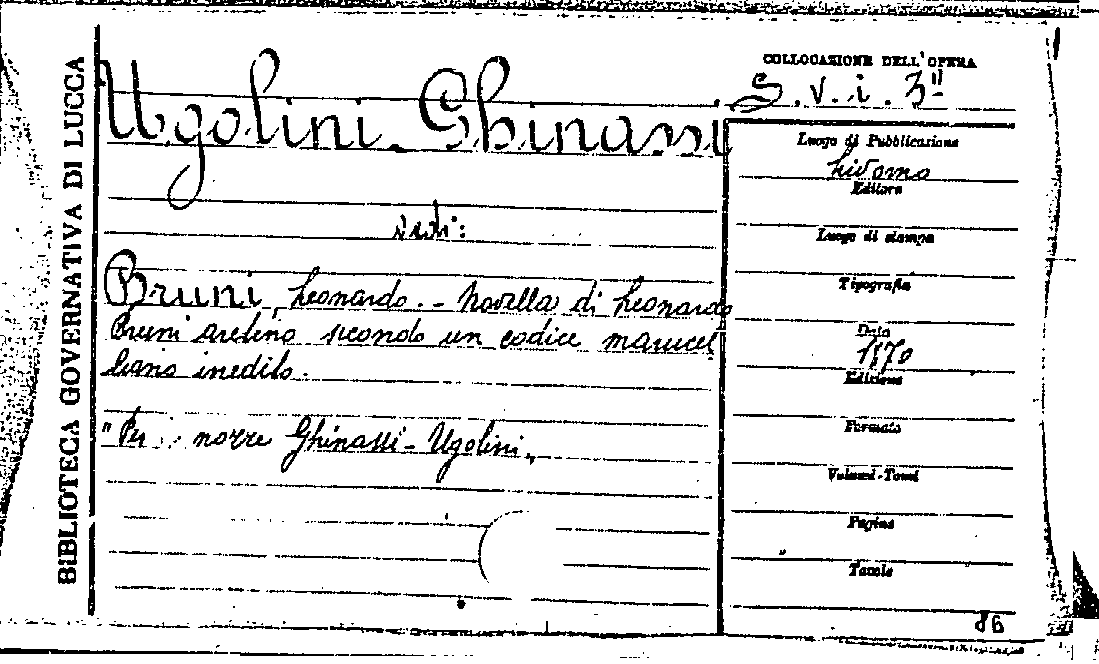 BIBLIOTECA GOVERNATIVA DI LUCCA
Ugolini-Ghinassi
vedi:
Bruni, Leonardo. - Novella di Leonardo
Bruni aretino secondo un codice marucel
liano inedito.
"Per nozze Ghinassi-Ugolini„
COLLOCAZIONE DELL'OPERA
S. v. i. 3"
Luogo di Pubblicazione
Livorno
Editore
Luogo di stampa
Tipografia
Data
1870
Edizione
Formato
Volumi-Tomi
Pagine
Tavole
86